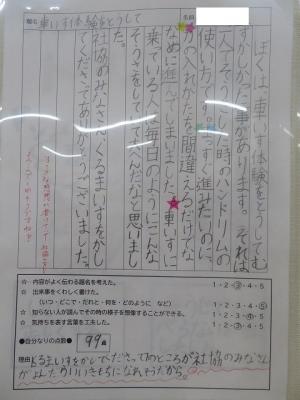 題名 車いす体験をとうして
名前
ぼくは、車いす体験をとうしてむ
ずかしかった事があります。それは
一人でそうさした時のハンドリムの
使い方です。まっすぐ進みたいのに、
力の入れかたを間違えるだけでな
なめに進んでしまいました。車いすに
乗っている人は毎日のようにこんな
そうさをしていて大へんだなと思いまし
た。
社協のみなさん、くるまいすをかし
てくださってありがとうございました。
☆ 内容がよく伝わる題名を考えた。 1・2・③・4・5
☆ 出来事をくわしく書けた。
(いつ・どこで・だれと・何を・どのように など) 1・2・3・④・5
☆ 知らない人が読んでその時の様子を想像することができる。
☆ 気持ちを表す言葉を工夫した。
●自分なりの点数● 99点
理由 くるまいすをかしてくださってのところが社協のみなさん
がよんだらいいきもちになれそうだから。